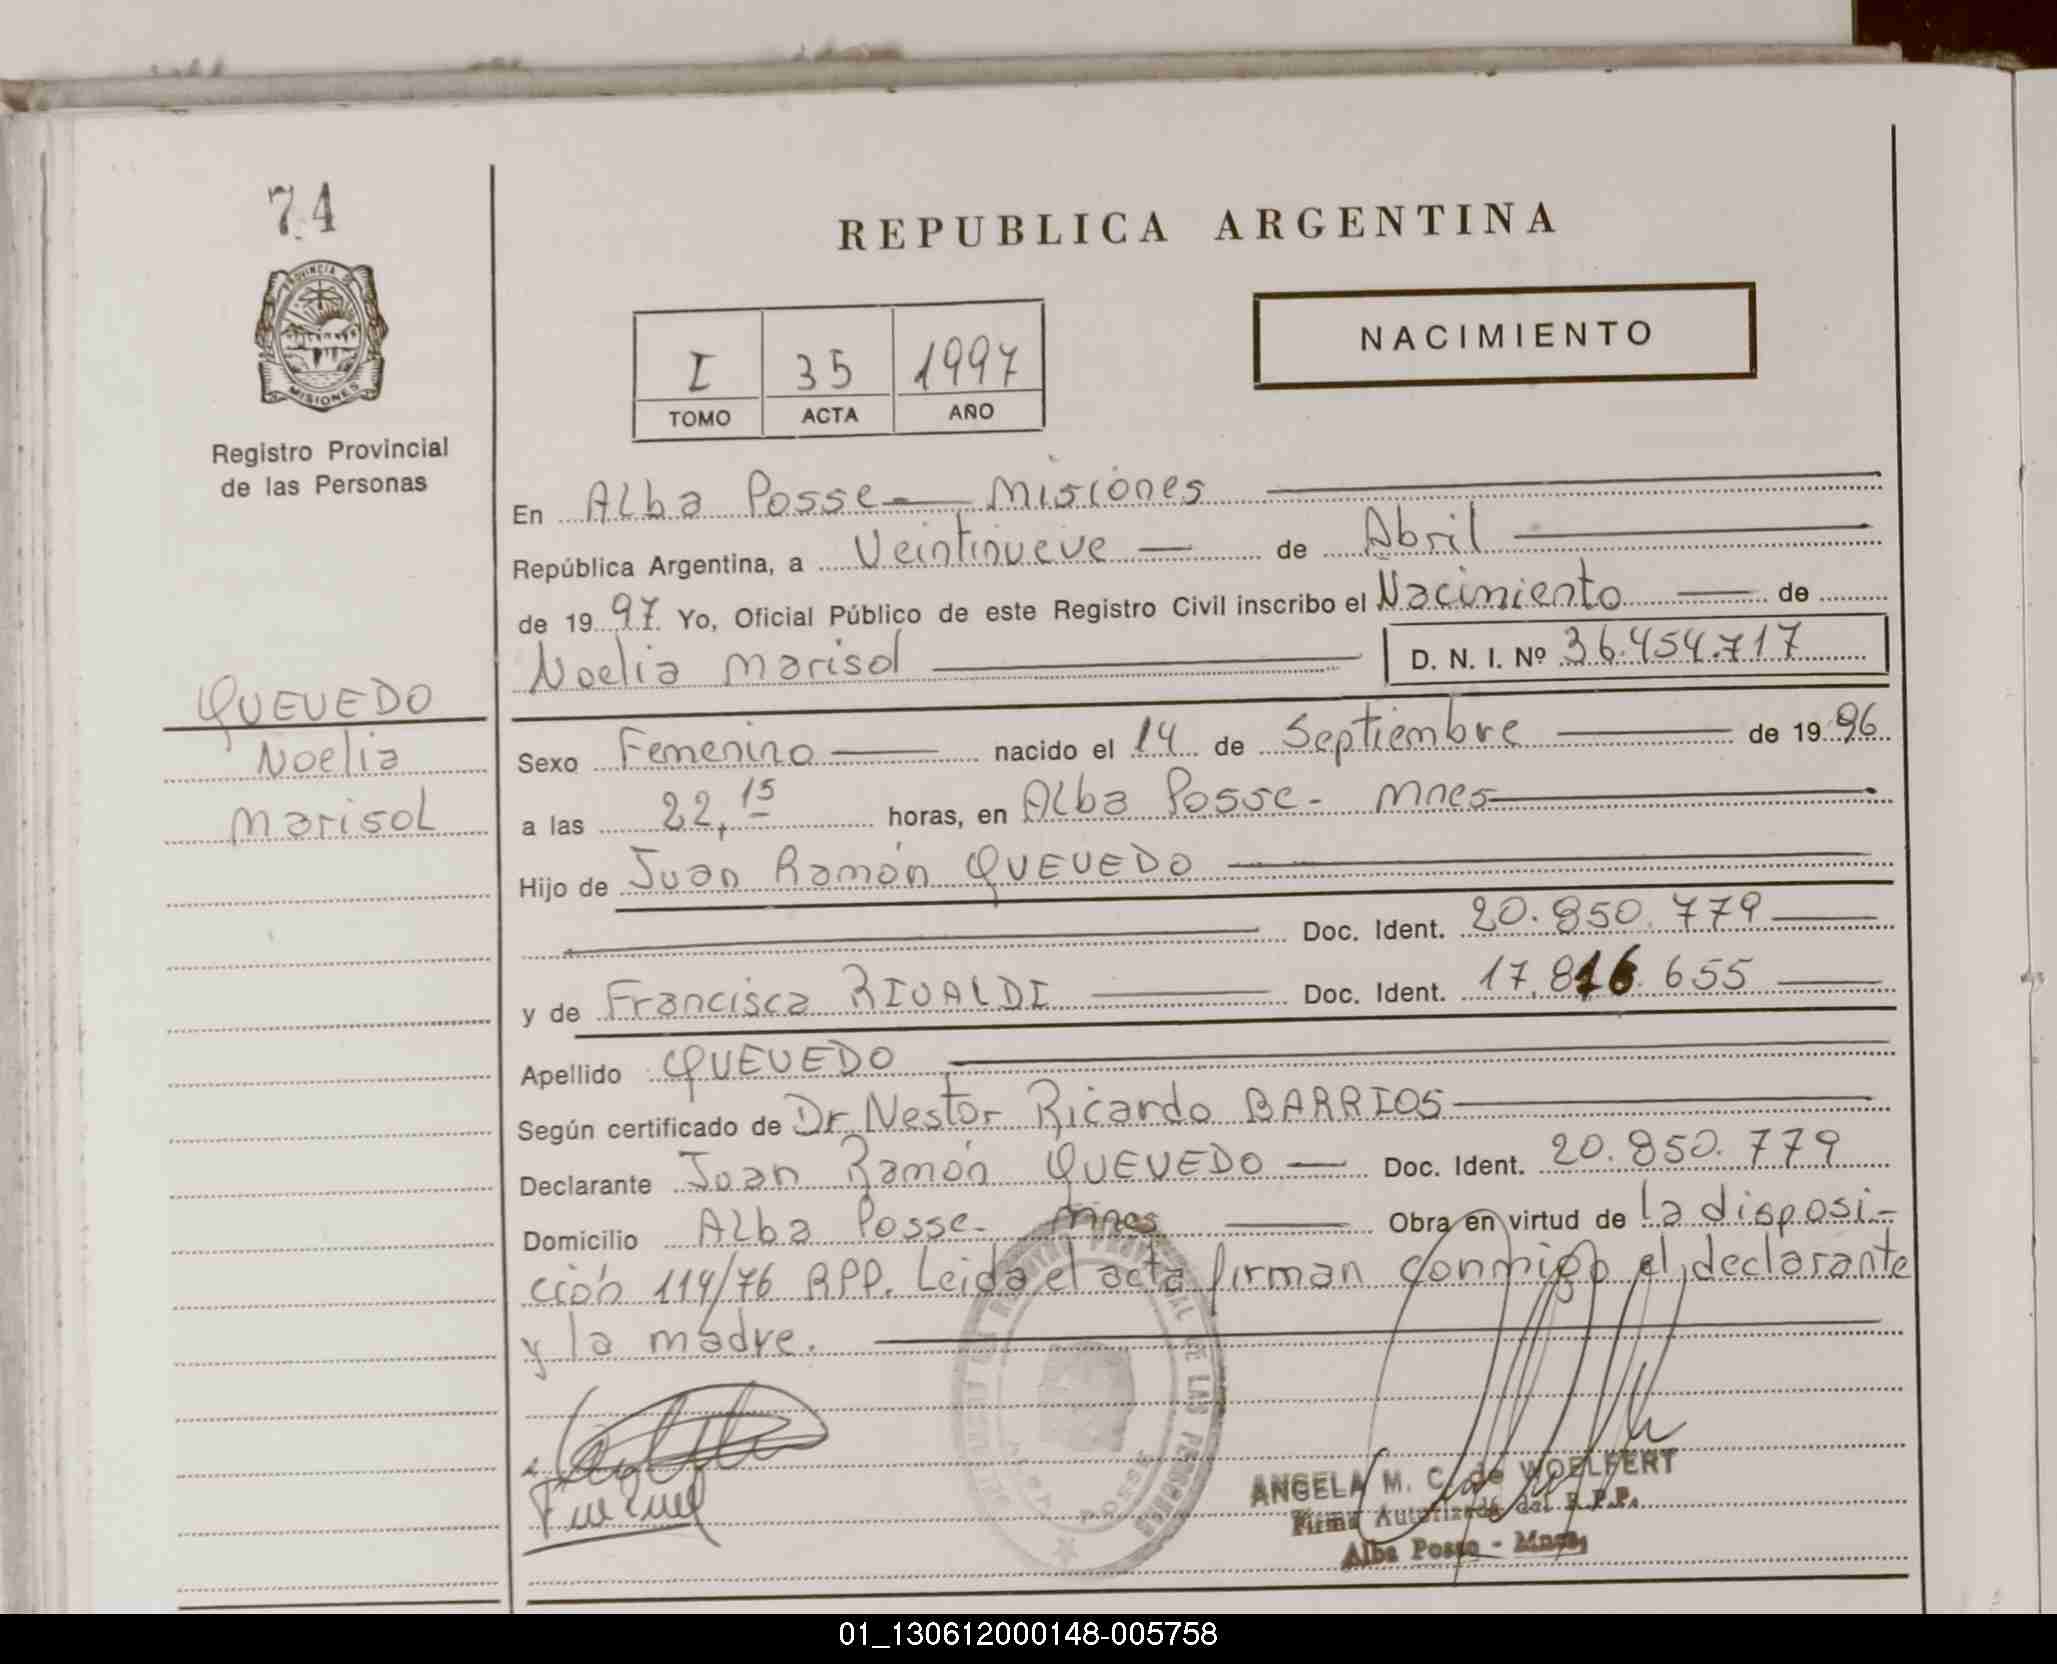 74
REPUBLICA ARGENTINA
PROVINCIA DE
MISIONES
NACIMIENTO
I 35 1997
TOMO ACTA AÑO
Registro Provincial
de las Personas
En Alba Posse - Misiones
República Argentina, a Veintinueve de Abril
de 1997 Yo, Oficial Público de este Registro Civil inscribo el Nacimiento de
Noelia Marisol D. N. I. Nº 36.454.717
QUEVEDO
Noelia
Marisol
Sexo Femenino nacido el 14 de Septiembre de 1996
a las 22,15 horas, en Alba Posse - Mnes
Hijo de Juan Ramón QUEVEDO
Doc. Ident. 20.850.779
y de Francisca RIVALDI Doc. Ident. 17.816.655
Apellido QUEVEDO
Según certificado de Dr. Nestor Ricardo BARRIOS
Declarante Juan Ramón QUEVEDO Doc. Ident. 20.850.779
Domicilio Alba Posse - Mnes Obra en virtud de la disposi-
ción 114/76 RPP. Leida el acta firman conmigo el declarante
y la madre.
REGISTRO PROVINCIAL DE LAS PERSONAS
ANGELA M. C. de WOELFERT
Firma Autorizada del R.P.P.
Alba Posse - Mnes.
01_130612000148-005758